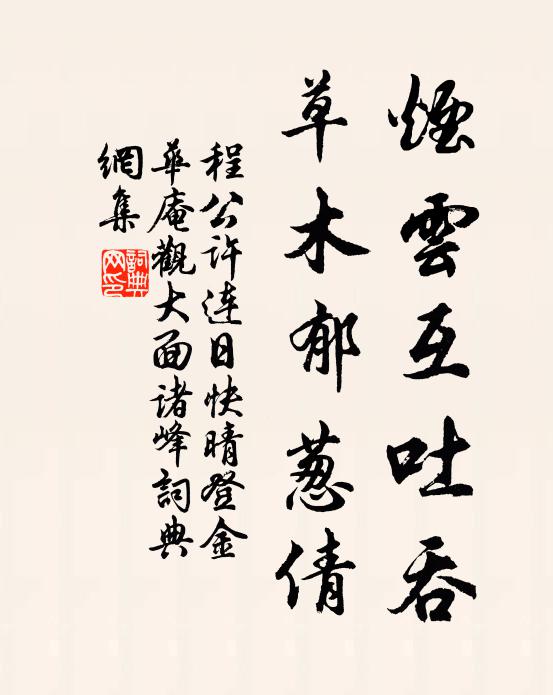 煙雲互吐吞
草木郁葱倩
程公许连日快晴登金
華庵觀大面诸峰詞典
網集
詞典
网印